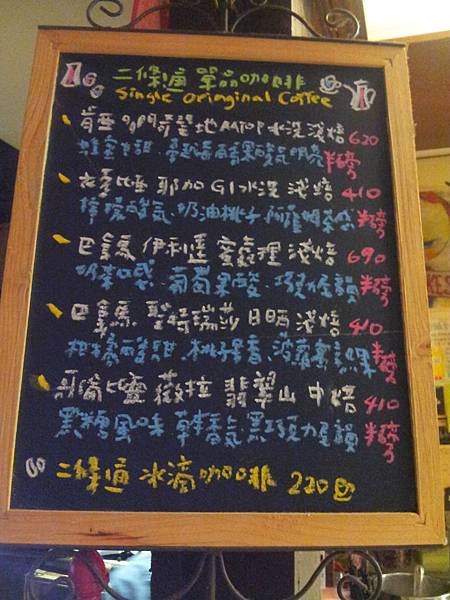 二條通 單品咖啡
Single Orieginal Coffee
肯亞 AATOP 水洗淺焙 620
半磅
衣索比亞 耶加 G1水洗 淺焙 410
檸檬酸氣 奶油桃子 半磅
巴拿馬 伊利達 蜜處理 淺焙 690
奶茶口感 葡萄果酸 巧克力尾韻 半磅
巴拿馬 聖特瑞莎 日晒 淺焙 410
柑橘酸甜 桃子果香 波蘿蜜 半磅
哥倫比亞 薇拉 翡翠山 中焙 410
黑糖風味 草本香氣 黑巧克力尾韻 半磅
二條通 冰滴咖啡 220